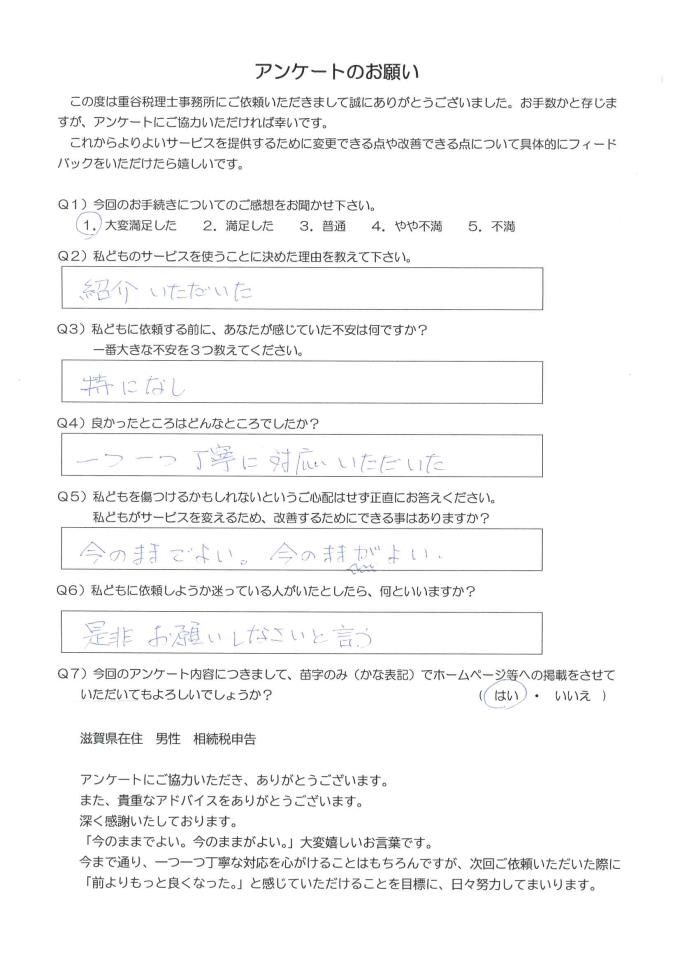 アンケートのお願い
この度は重谷税理士事務所にご依頼いただきまして誠にありがとうございました。お手数かと存じま
すが、アンケートにご協力いただければ幸いです。
これからよりよいサービスを提供するために変更できる点や改善できる点について具体的にフィード
バックをいただけたら嬉しいです。
Q1）今回のお手続きについてのご感想をお聞かせ下さい。
1．大変満足した　2．満足した　3．普通　4．やや不満　5．不満
Q2）私どものサービスを使うことに決めた理由を教えて下さい。
紹介いただいた
Q3）私どもに依頼する前に、あなたが感じていた不安は何ですか？
一番大きな不安を３つ教えてください。
特になし
Q4）良かったところはどんなところでしたか？
一つ一つ丁寧に対応いただいた
Q5）私どもを傷つけるかもしれないというご心配はせず正直にお答えください。
私どもがサービスを変えるため、改善するためにできる事はありますか？
今のままでよい。今のままがよい．
Q6）私どもに依頼しようか迷っている人がいたとしたら、何といいますか？
是非お願いしなさいと言う
Q7）今回のアンケート内容につきまして、苗字のみ（かな表記）でホームページ等への掲載をさせて
いただいてもよろしいでしょうか？　（ はい ・ いいえ ）
滋賀県在住　男性　相続税申告
アンケートにご協力いただき、ありがとうございます。
また、貴重なアドバイスをありがとうございます。
深く感謝いたしております。
「今のままでよい。今のままがよい。」大変嬉しいお言葉です。
今まで通り、一つ一つ丁寧な対応を心がけることはもちろんですが、次回ご依頼いただいた際に
「前よりもっと良くなった。」と感じていただけることを目標に、日々努力してまいります。